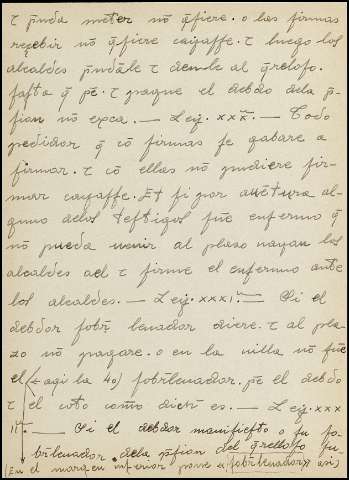 τ p̄nda meter nō q̄fiere. o las firmas
reçebir nō q̄fiere cayaffe. τ luego los
alcaldes p̄ndāle τ denle al q̄relofo.
fafta q̄ pē. τ pague el debdo dela p̄-
fion nō exca. — Ley. xxx. — Todo
pedidor q̄ cō firmas fe gabare a
firmar. τ cō ellas nō pudiere fir-
mar cayaffe. Et fi por auētura al-
guno delos teftigos fuē enfermo q̄
nō pueda uenir al plaso uayan los
alcaldes ad τ firme el enfermo ante
los alcaldes. — Ley. xxxı. — Si el
debdor fobr leuador diere. τ al pla-
zo nō pagare. o en la uilla nō fuē
el (← aqi la 40) fobrleuador. pē el debdo
τ el coto como dicħ es. — Ley. xxx
ıı. — Si el debdor manifiefto o fu fo-
brleuador. dela p̄fion del q̄rellofo fu-
(En el margen inferior pone el fobrleuador así)